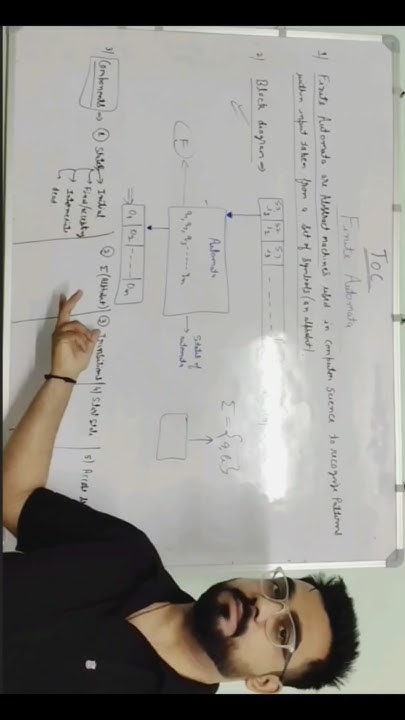 TOC
Finite Automata
1) Finite Automata are Abstract machines used in computer science to recognize Patterns
within input taken from a set of symbols (an alphabet).
2) Block diagram →
Σ = {a, b}
Automata
q, q2 q3 ...... qn
States of
automata
(F)
O1 O2 ... On
3) Components → ① States → Initial
Final/accepting
Intermediate
dead
② Σ (Alphabet)
③ Transitions
4) Start State
5) Accept